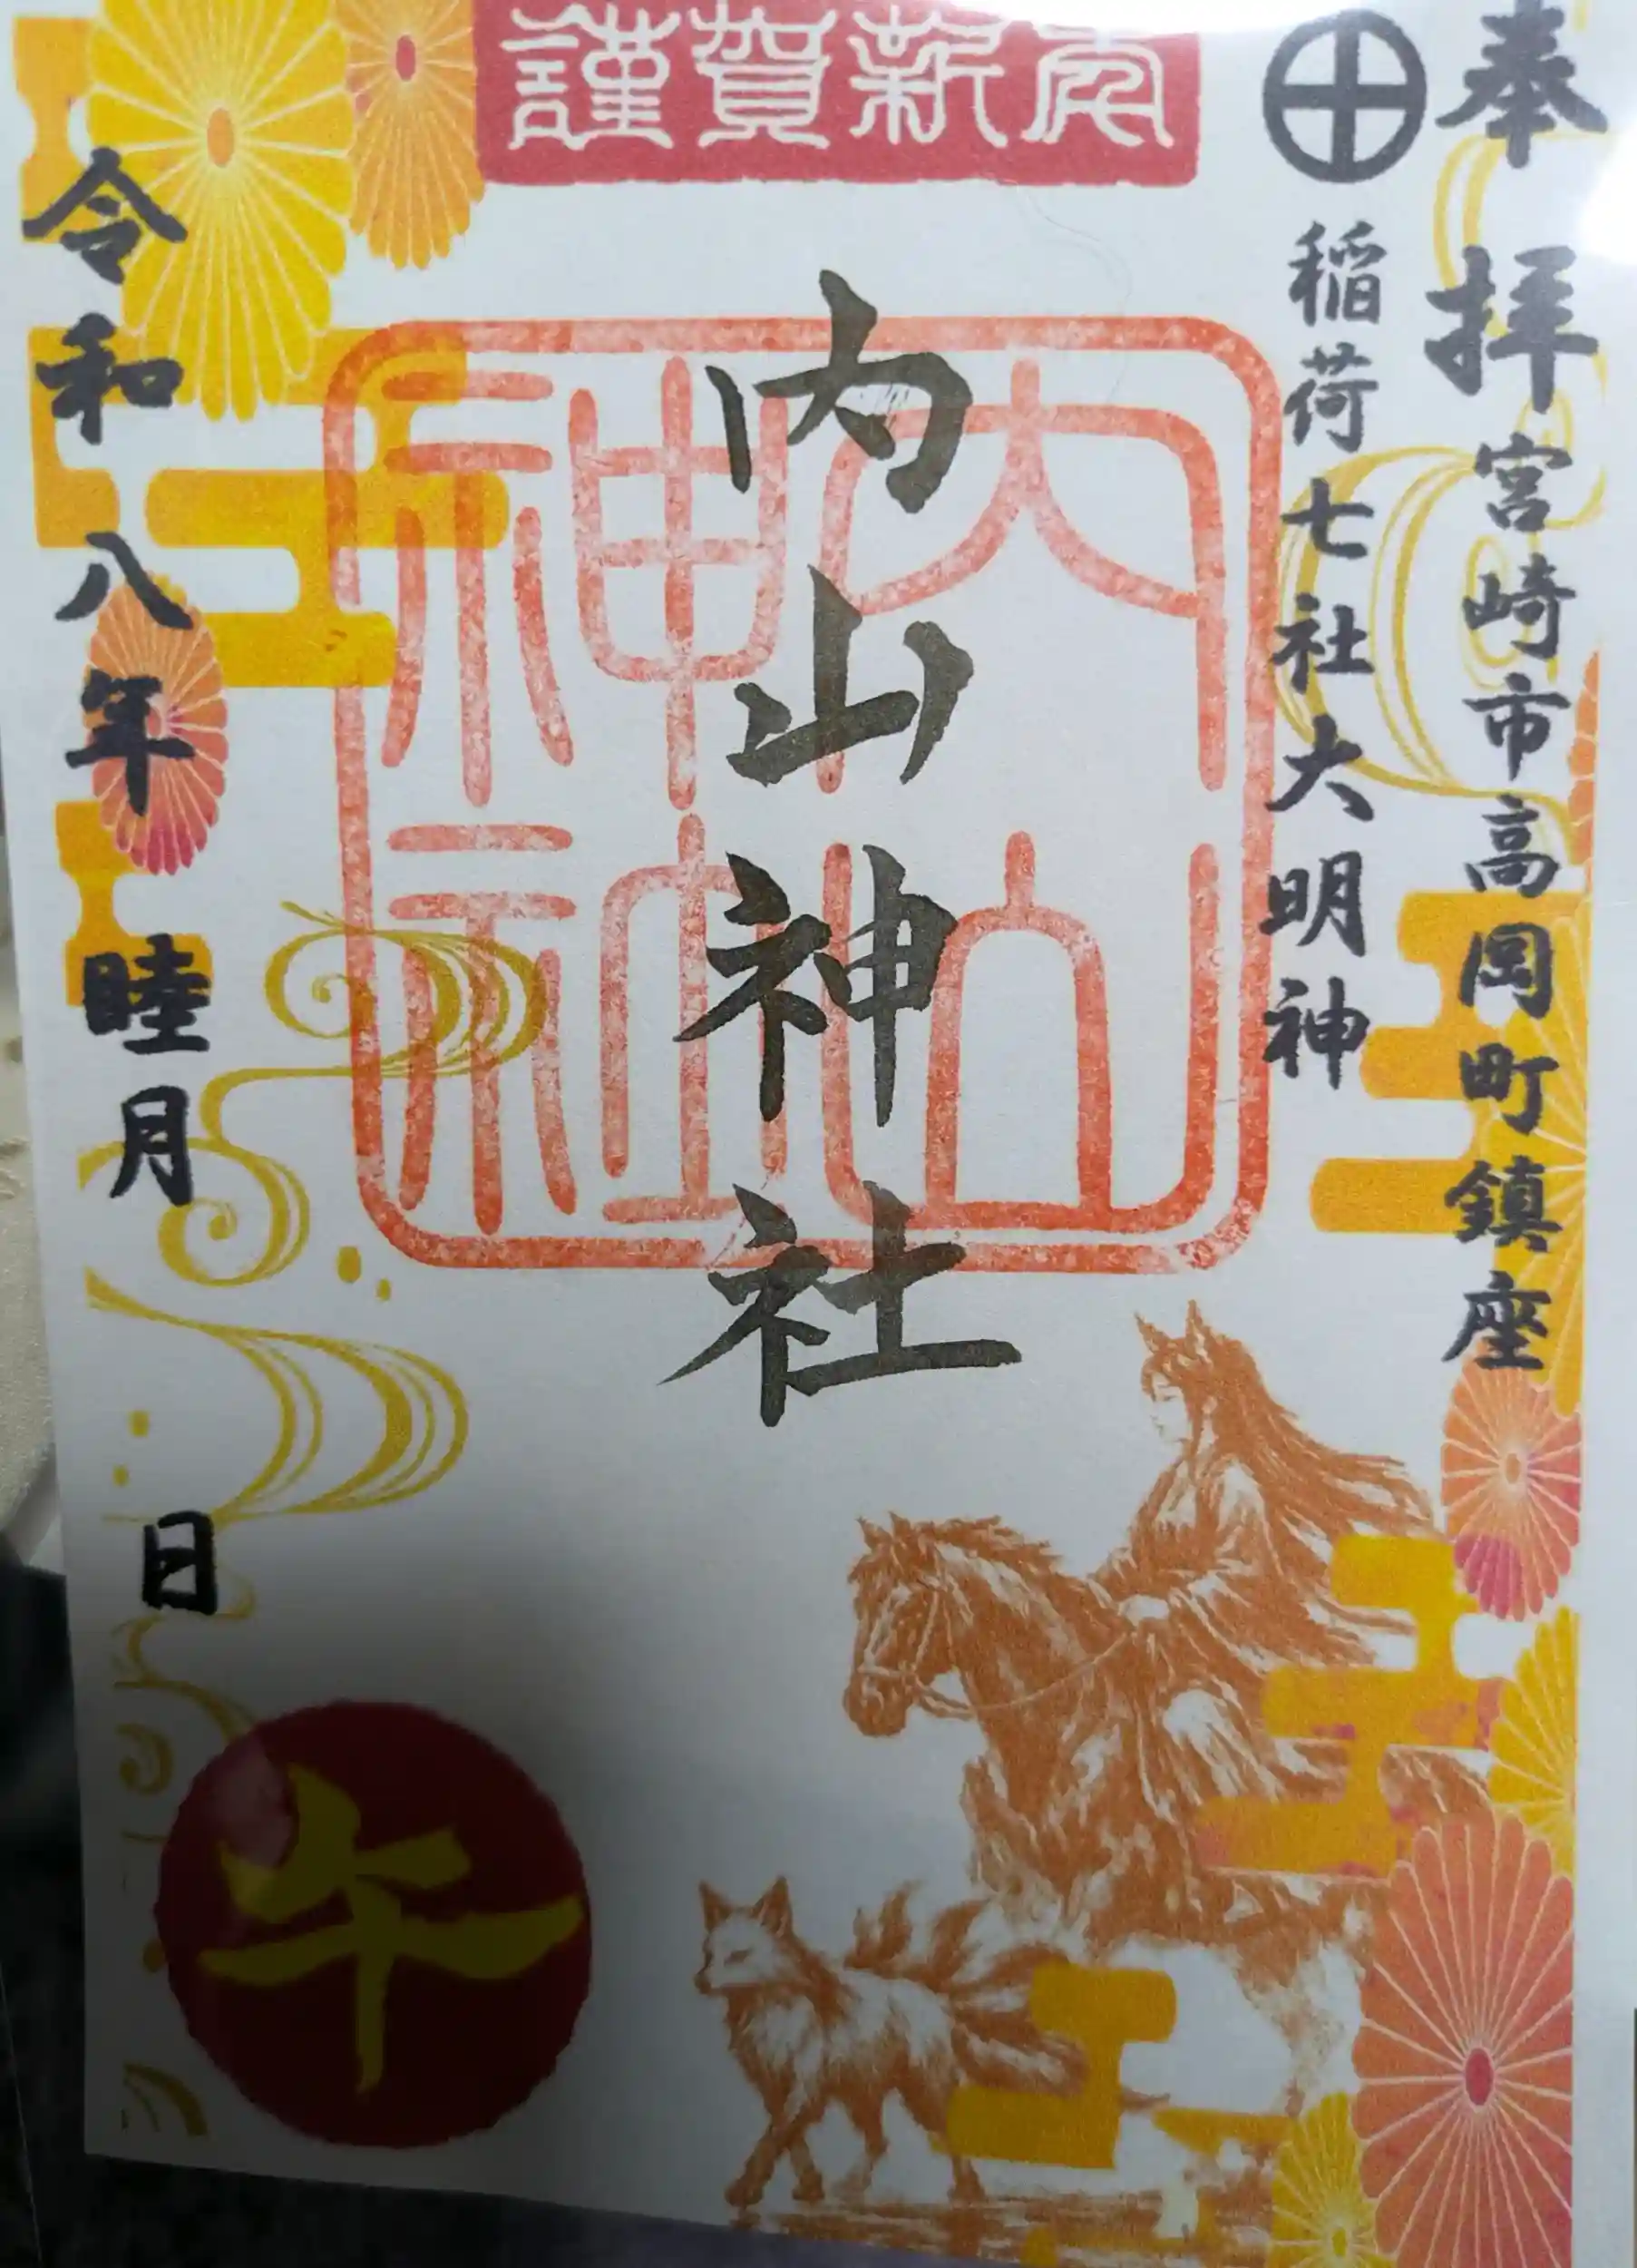 謹賀新年
奉拝
宮崎市高岡町鎮座
稲荷七社大明神
内山神社
内山神社
令和八年 睦月 日
午